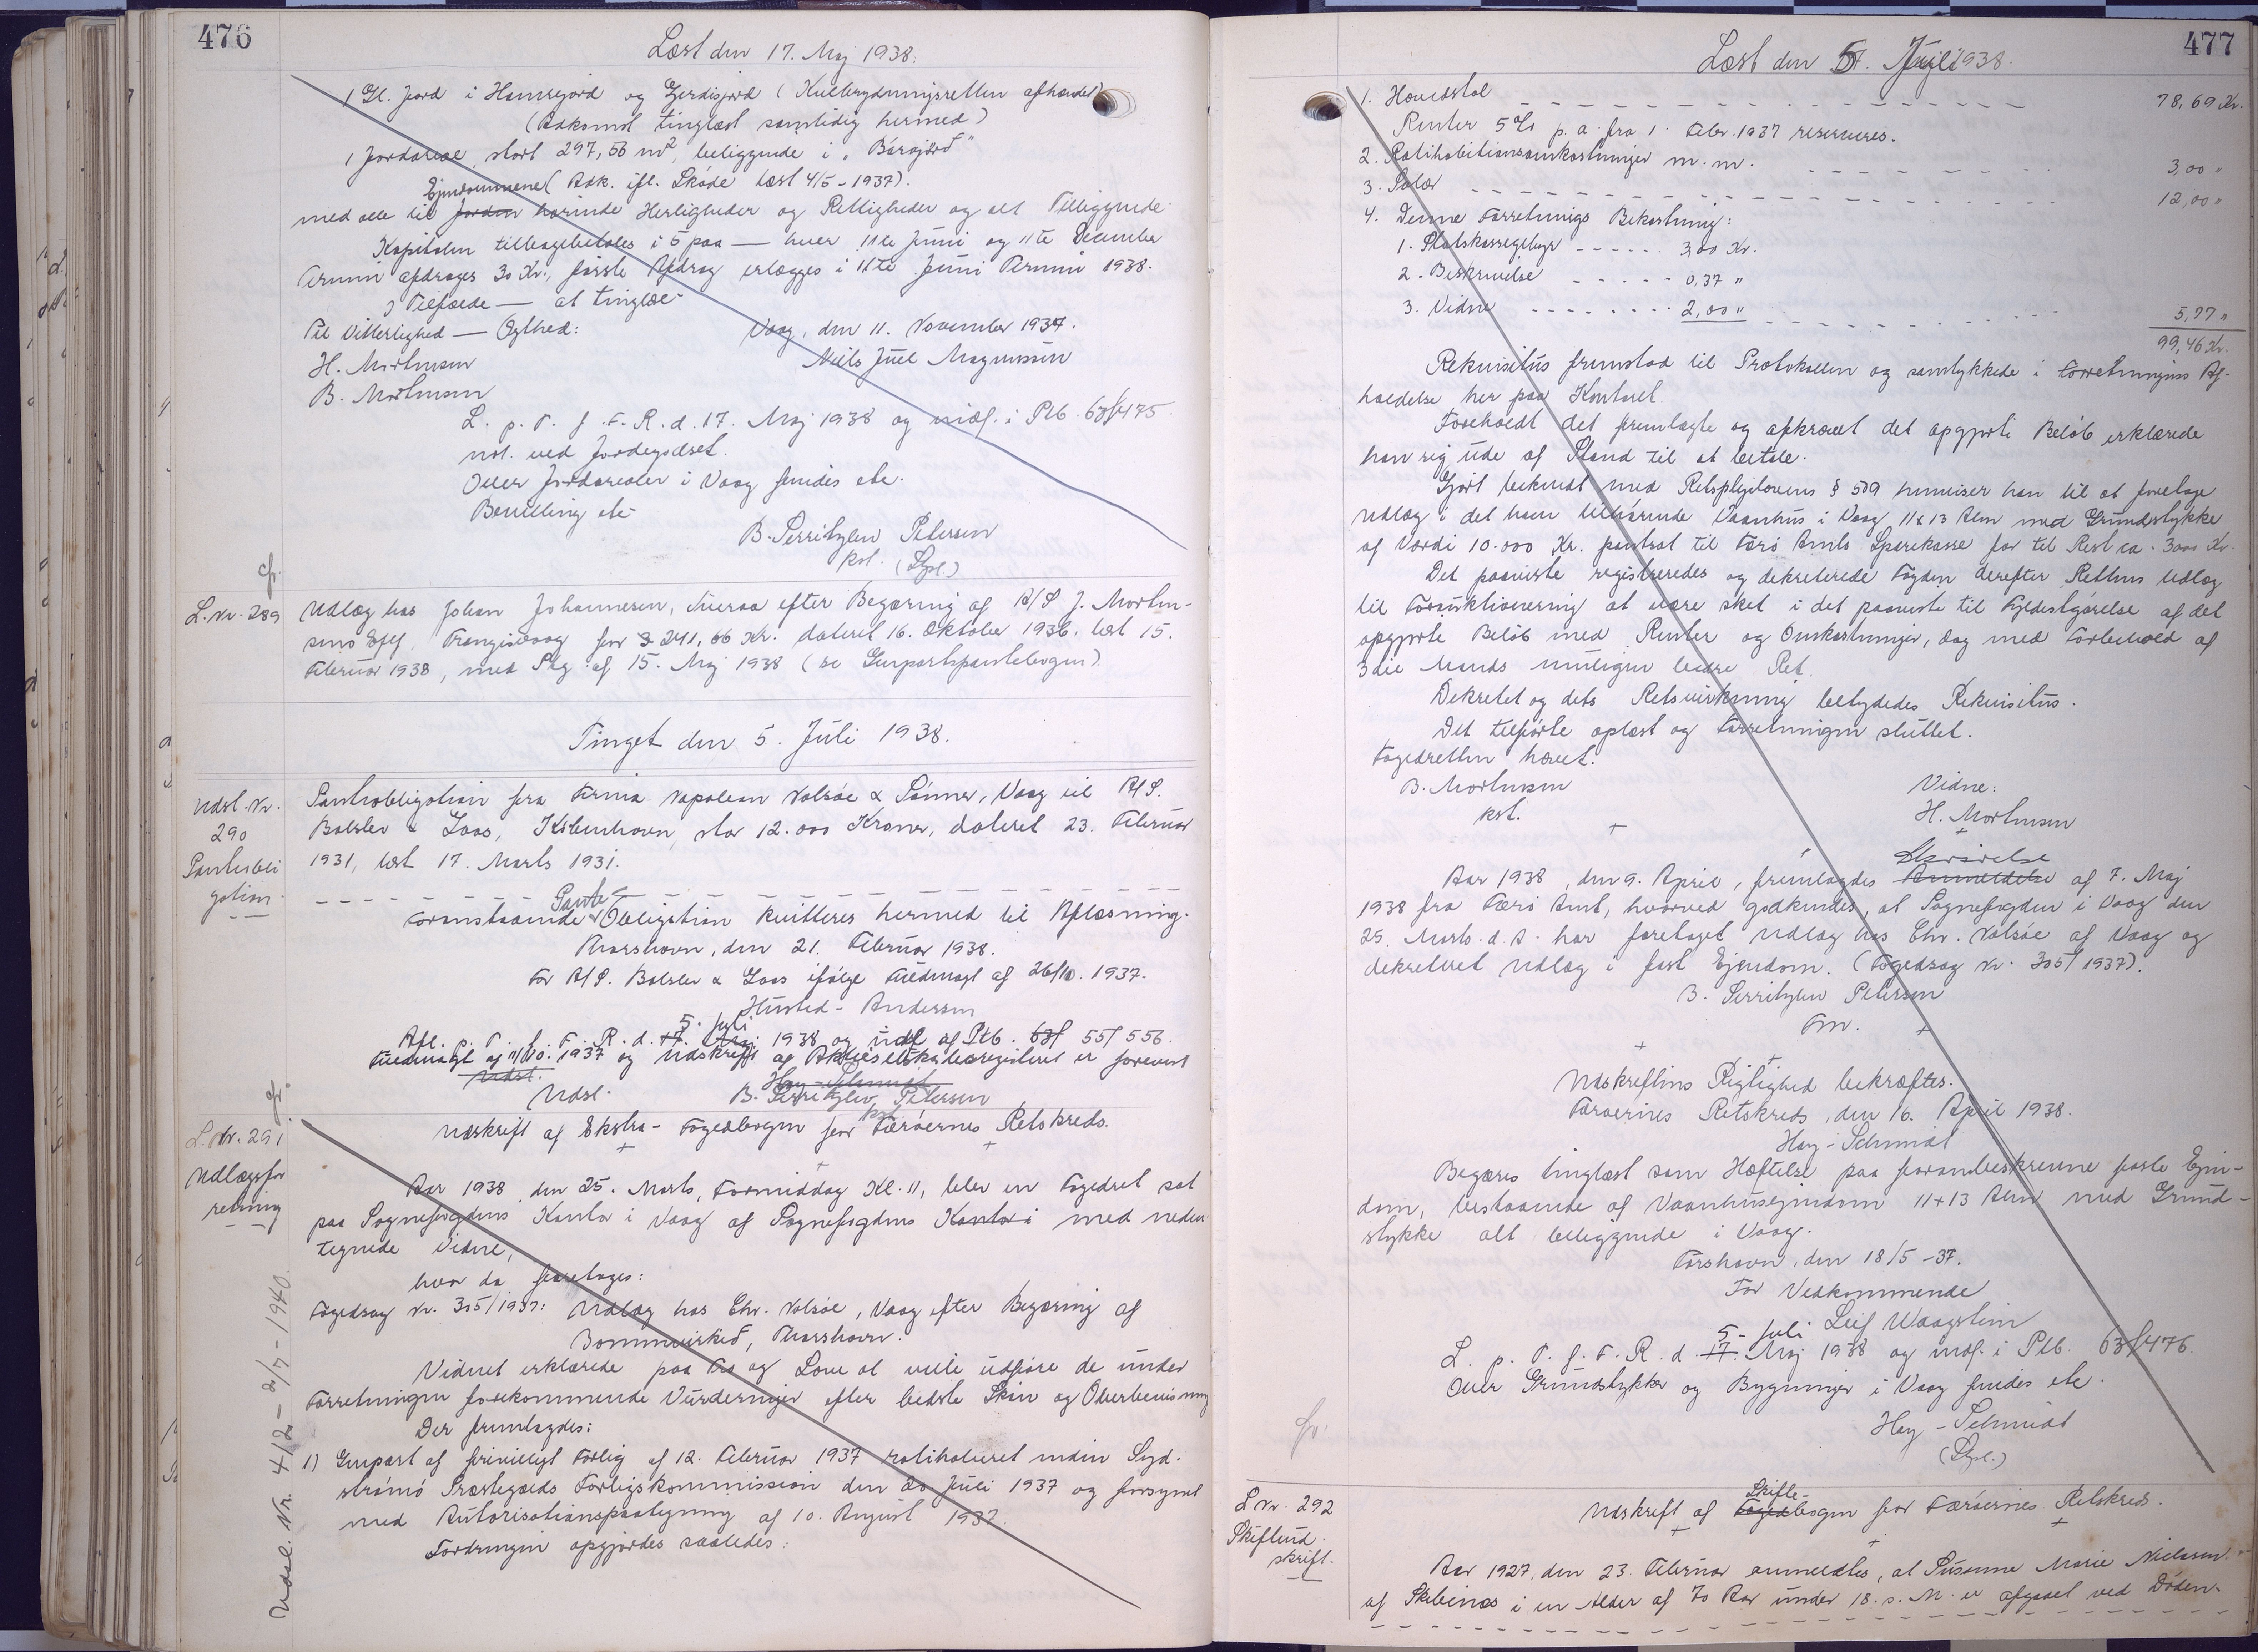 476
Læst den 17. Maj 1938.
1 Gl. Jord i Hamrejord og Gerdisjord (Kulbrydningsretten afhændet)
(Adkomst tinglæst samtidig hermed)
1 Jordareal, stort 297,56 m², beliggende i "Barajörd"
Ejendommene (Adk. ifl. Skøde læst 4/5-1937).
med alle til Jorden hørende Herligheder og Rettigheder og alt Tilliggende
Kapitalen tilbagebetales i 5 paa — hver 11te Juni og 11te December
Termin afdrages 30 Kr., første Afdrag erlægges i 11te Juni Termin 1938.
I Tilfælde — at tinglæse
Til Vitterlighed — Ægthed:
Vaag, den 11. November 1937.
H. Mortensen
Niels Juel Magnussen
B. Mortensen
L. p. T. f. F. R. d. 17. Maj 1938 og indf. i Ptb. 63f475
not. ved Jordegodset.
Over Jordarealer i Vaag findes etc.
Bevilling etc
B. Serritzlew Petersen
kst. (Sgl.)
cfr.
L. Nr. 289
Udlæg hos Johan Johannesen, Tveraa efter Begæring af A/S J. Morten-
sens Eftf. Trangisvaag for 3 241,66 Kr. dateret 16. Oktober 1936. læst 15.
Februar 1938, med Pag af 15. Maj 1938 (se Genpartspantebogen)
Tinget den 5. Juli 1938.
Udsl. Nr. 290
Pantobli
gation
Pantobligation fra Firma Napoleon Nolsøe & Sønner, Vaag til A/S.
Balslev & Loos, København, stor 12.000 Kroner, dateret 23. Februar
1931, læst 17. Marts 1931.
Foranstaaende Pante Obligation kvitteres hermed til Aflæsning.
Thorshavn, den 21. Februar 1938.
For A/S. Balslev & Loos ifølge Fuldmagt af 26/10. 1937.
Husted-Andersen
5. Juli
Afl. p. T. f. F. R. d. 17. Maj 1938 og udsl af Ptb. 63f 55f 556.
Fuldmagt af 11/10. 1937 og Udskrift af Aktieselskabsregistret er forevist
Udsl.
Hay-Schmidt
Udsl.
B. Serritzlew Petersen
kst
cfr.
L. Nr. 291
Udlægsfor
retning
Udsl. Nr. 412 - 2/7 - 1940.
Udskrift af Ekstra-Fogedbogen for Færøernes Retskreds.
Aar 1938, den 25. Marts, Formiddag Kl. 11, blev en Fogedret sat
paa Sognefogdens Kontor i Vaag af Sognefogdens Kontor i med neden
tegnede Vidne,
hvor da foretages:
Fogedsag Nr. 305/1937: Udlæg hos Chr. Nolsøe, Vaag efter Begæring af
Bommuirked, Thorshavn.
Vidnet erklærede paa Tro og Love at ville udføre de under
Forretningen forekommende Vurderinger efter bedste Skøn og Overbevisning
Der fremlagdes:
1) Genpart af frivilligt Forlig af 12. Februar 1937 ratihaberet inden Syd-
strømø Præstegælds Forligskommission den 20 Juli 1937 og forsynet
med Autorisationspaategning af 10. August 1937.
Fordringen opgjordes saaledes:
477
Læst den 5. Juli 1938.
1. Hovedstol 78,69 Kr.
Renter 5% p.a. fra 1. Febr. 1937 reserveres.
2. Ratihabitionsomkostninger m.m. 3,00 "
3. Salær 12,00 "
4. Denne Forretnings Bekostning:
1. Statskassegebyr 3,00 Kr.
2. Beskrivelse 0,37 "
3. Vidne 2,00 " 5,77 "
99,46 Kr.
Rekvisitus fremstod til Protokollen og samtykkede i Forretningens Af-
holdelse her paa Kontoret.
Foreholdt det fremlagte og afkrævet det opgjorte Beløb erklærede
han sig ude af Stand til at betale.
Gjort bekendt med Retsplejelovens § 509 henviser han til at foretage
Udlæg i det ham tilhørende Vaanhus i Vaag, 11x13 Alen med Grundstykke
af Værdi 10.000 Kr. pantsat til Færø Amts Sparekasse for til Rest ca. 3000 Kr.
Det paaviste registreredes og dekreterede Fogden derefter Rettens Udlæg
til Forsiktionering at være sket i det paaviste til Fyldestgørelse af det
opgjorte Beløb med Renter og Omkostninger, dog med Forbehold af
3die Mands muligen bedre Ret.
Dekretet og dets Retsvirkning betydedes Rekvisitus.
Det tilførte oplæst og Forretningen sluttet.
Fogedretten hævet.
B. Mortensen
Vidne:
kst.
H. Mortensen
Skrivelse
Aar 1938, den 9. April, fremlagdes Anmeldelse af 7. Maj
1938 fra Færø Amt, hvorved godkendes, at Sognefogden i Vaag den
25. Marts d. A. har foretaget Udlæg hos Chr. Nolsøe af Vaag og
dekreteret Udlæg i fast Ejendom. (Fogedsag Nr. 305/1937).
B. Serritzlew Petersen
Fm.
Udskriftens Rigtighed bekræftes.
Færøernes Retskreds, den 16. April 1938.
Hay-Schmidt
Begæres tinglæst som Hæftelse paa foranbeskrevne faste Ejen-
dom, bestaaende af Vaanhusejendom 11+13 Alen med Grund-
stykke alt beliggende i Vaag.
Torshavn, den 18/5-37.
For Vedkommende
Leif Waagstein
5- Juli
L. p. T. f. F. R. d. 17. Maj 1938 og indf. i Ptb. 63f476.
Over Grundstykker og Bygninger i Vaag findes etc.
Hay-Schmidt
(Sgl.)
cfr.
L Nr. 292
Skifteud
skrift.
Skifte-
Udskrift af Fogedbogen for Færøernes Retskreds.
Aar 1927, den 23. Februar anmeldtes, at Susanne Marie Nielsen
af Skibenæs i en Alder af 70 Aar under 18. s. M. er afgaaet ved Døden.